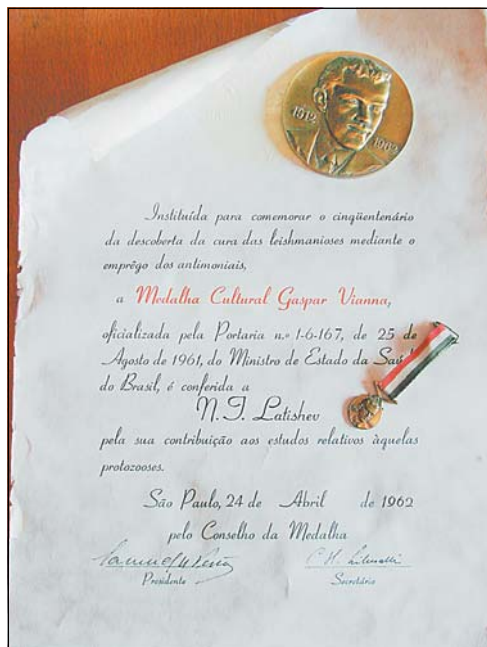 1912 1962
Instituída para comemorar o cinqüentenário
da descoberta da cura das leishmanioses mediante o
emprêgo dos antimoniais,
a Medalha Cultural Gaspar Vianna,
oficializada pela Portaria n.º 1-6-167, de 25 de
Agosto de 1961, do Ministro de Estado da
do Brasil, é conferida a
N.I. Latishev
pela sua contribuição aos estudos relativos àquelas
protozooses.
São Paulo, 24 de Abril de 1962
pelo Conselho da Medalha
Presidente Secretário